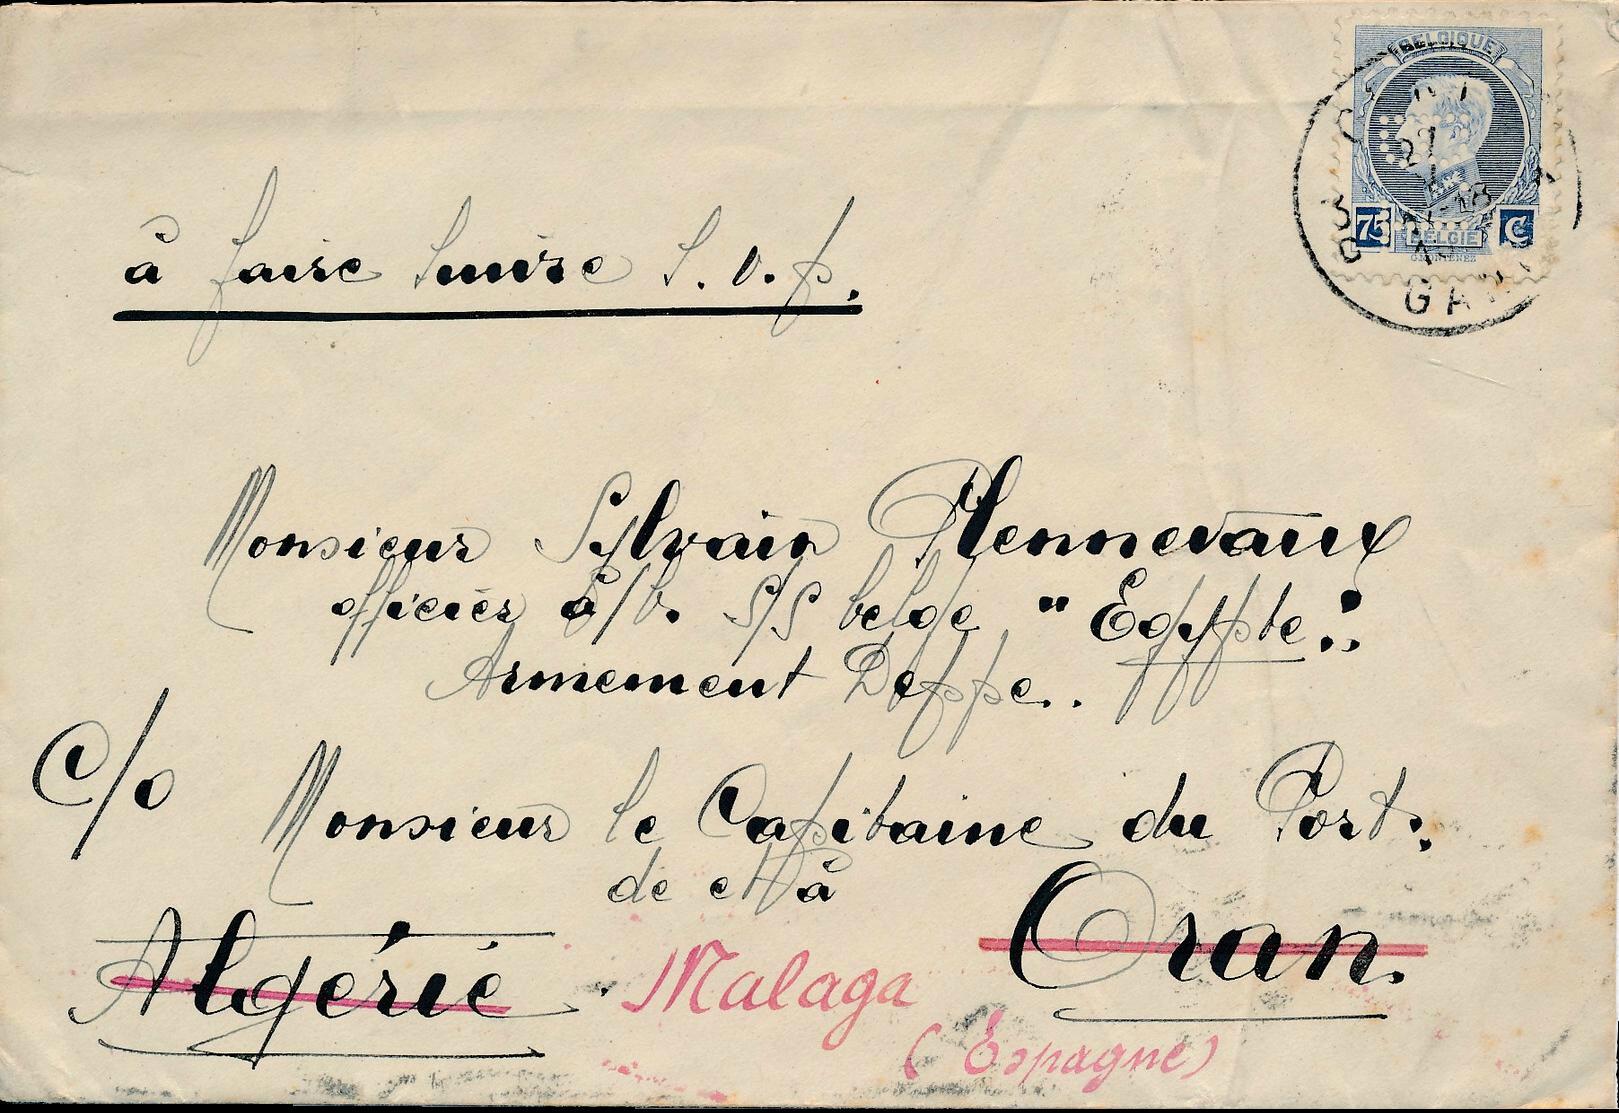 BELGIQUE
75 C
BELGIË
G.MONTENEZ
à faire suivre S. v. p.
Monsieur Sylvain Hennevaux
officier à/b. S/S belge "Egypte".
Armement Deppe..
C/o Monsieur le Capitaine du Port.
de et à
Oran.
Algérie
Malaga
(Espagne)